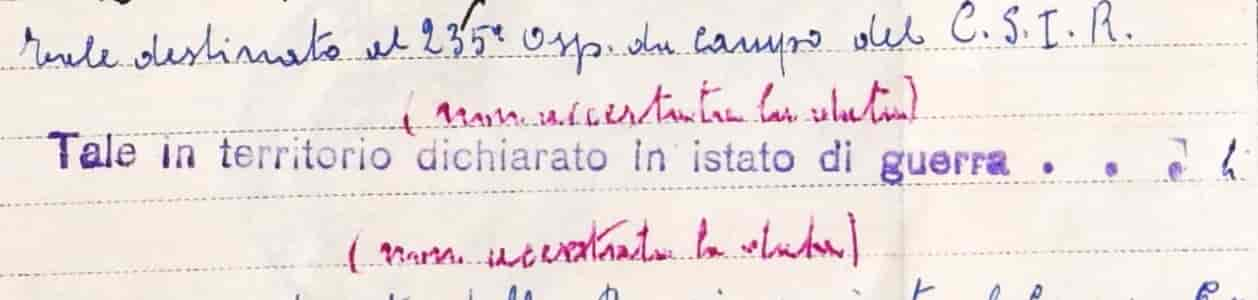 Tale destinato al 235° Osp. da campo del C.S.I.R.
(non accertata la data)
Tale in territorio dichiarato in istato di guerra . . .
(non accertata la data)